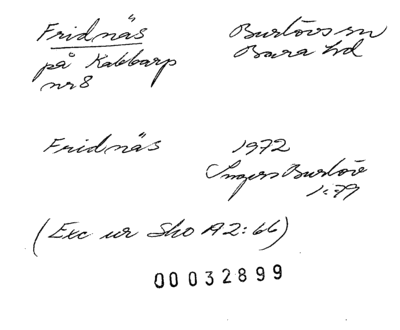 Fridnäs Burlövs sn
på Kabbarp Bara hd
nr 8
Fridnäs 1972
Burlöv
1:79
(Exc ur Sko A2:66)
00032899